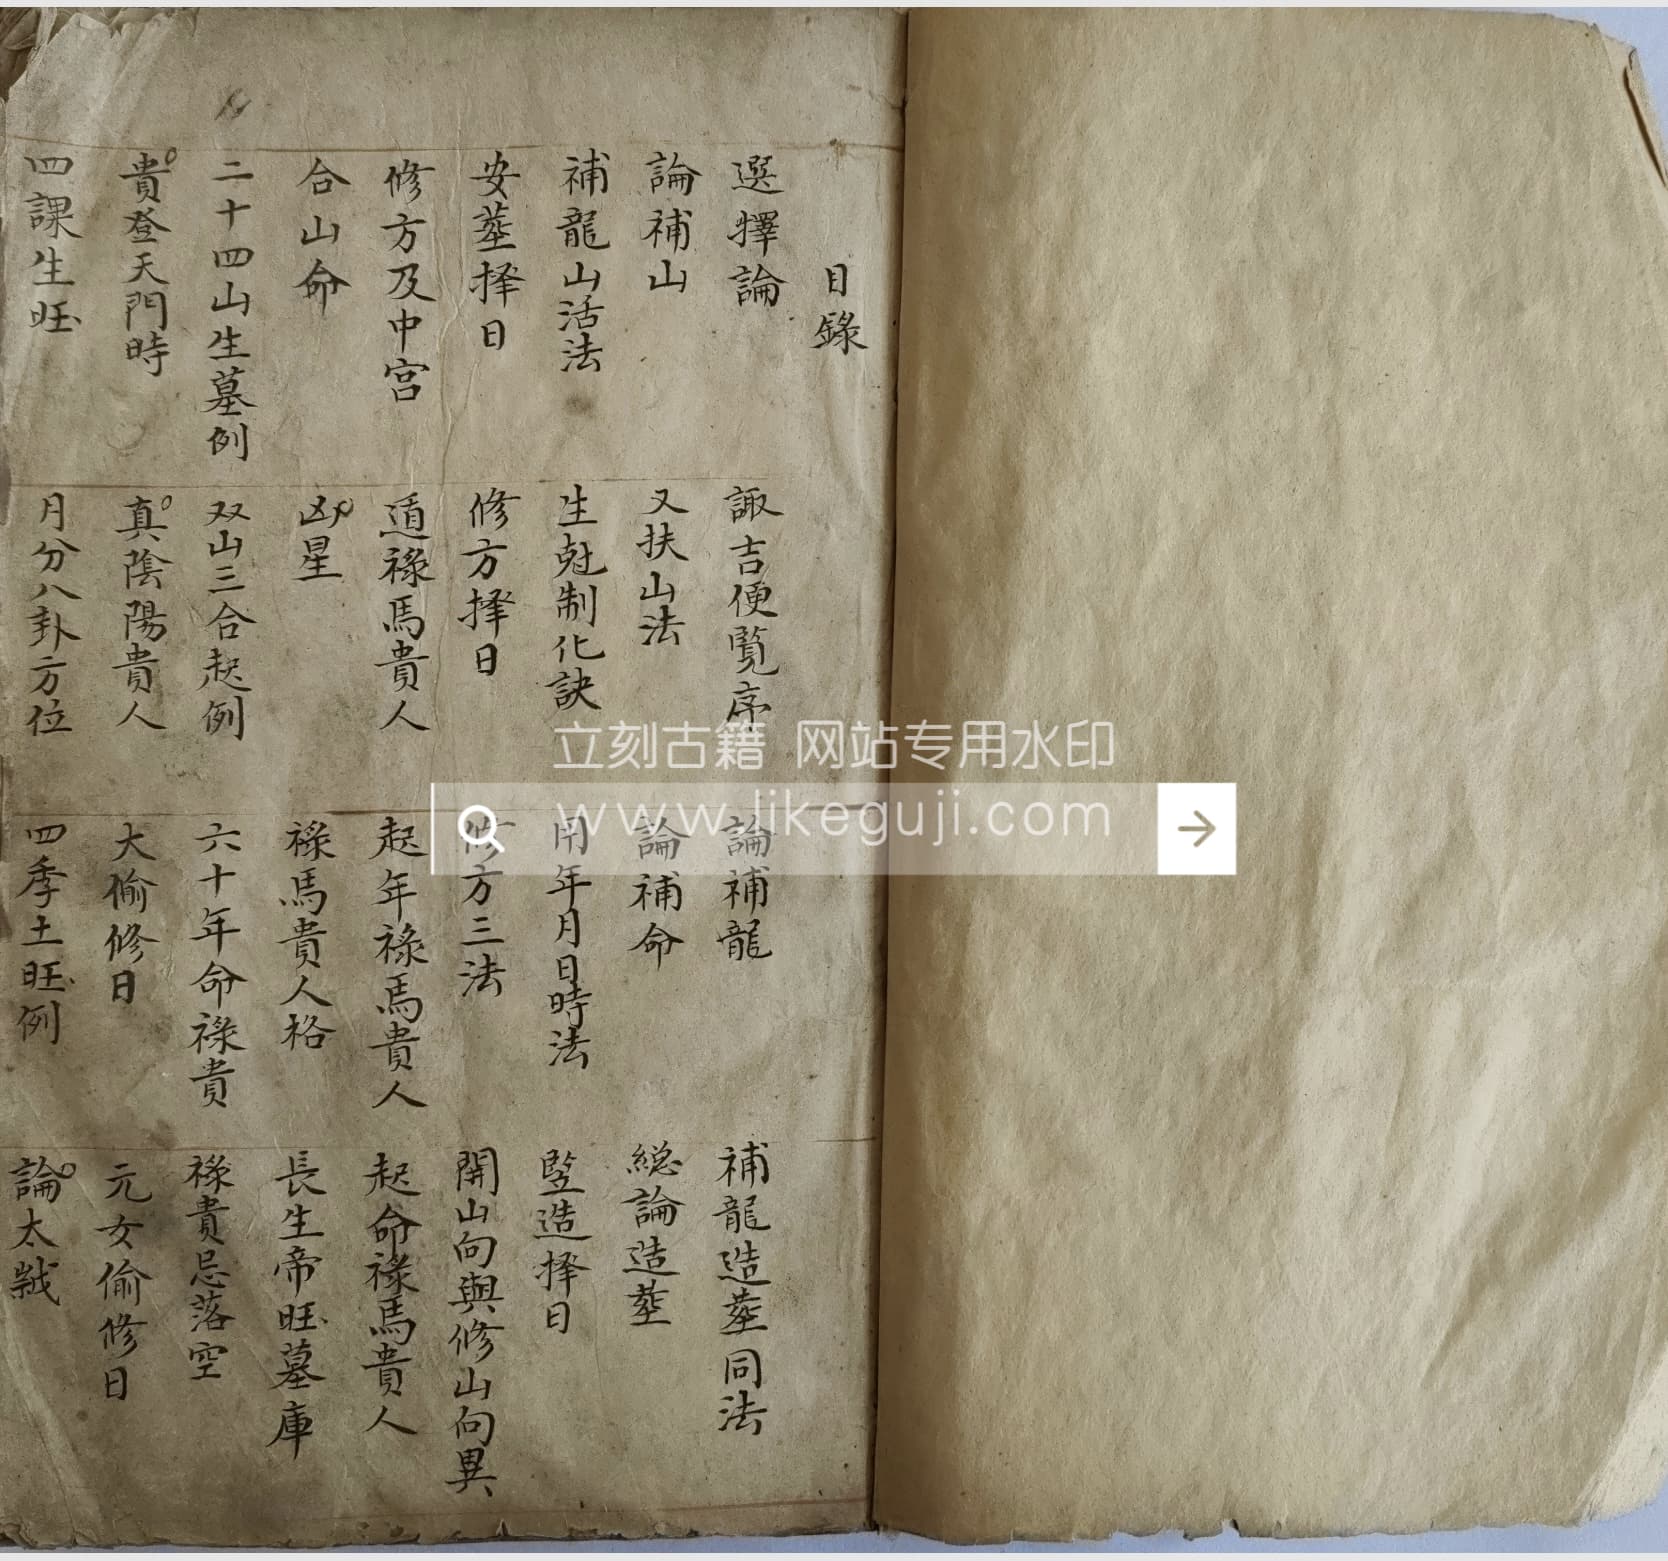 目錄
選擇論
諏吉便覧序
論補龍
補龍造塟同法
論補山
又扶山法
論補命
総論造塟
補龍山活法
生尅制化訣
用年月日時法
竪造择日
安塟择日
修方择日
修方三法
開山向與修山向異
修方及中宫
遁祿馬貴人
起年祿馬貴人
起命祿馬貴人
合山命
凶星
祿馬貴人格
長生帝旺墓庫
二十四山生墓例
双山三合起例
六十年命祿貴
祿貴忌落空
貴登天門時
真陰陽貴人
大偷修日
元女偷修日
四課生旺
月分八卦方位
四季土旺例
論太歲
立刻古籍 网站专用水印
www.likeguji.com